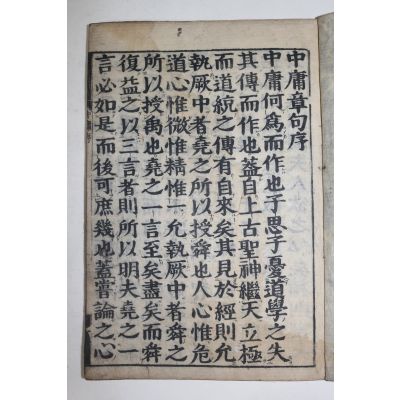 中庸章句序
中庸何爲而作也子思子憂道學之失
其傳而作也蓋自上古聖神繼天立極
而道統之傳有自來矣其見於經則允
執厥中者堯之所以授舜也人心惟危
道心惟微惟精惟一允執厥中者舜之
所以授禹也堯之一言至矣盡矣而舜
復益之以三言者則所以明夫堯之一
言必如是而後可庶幾也蓋嘗論之心